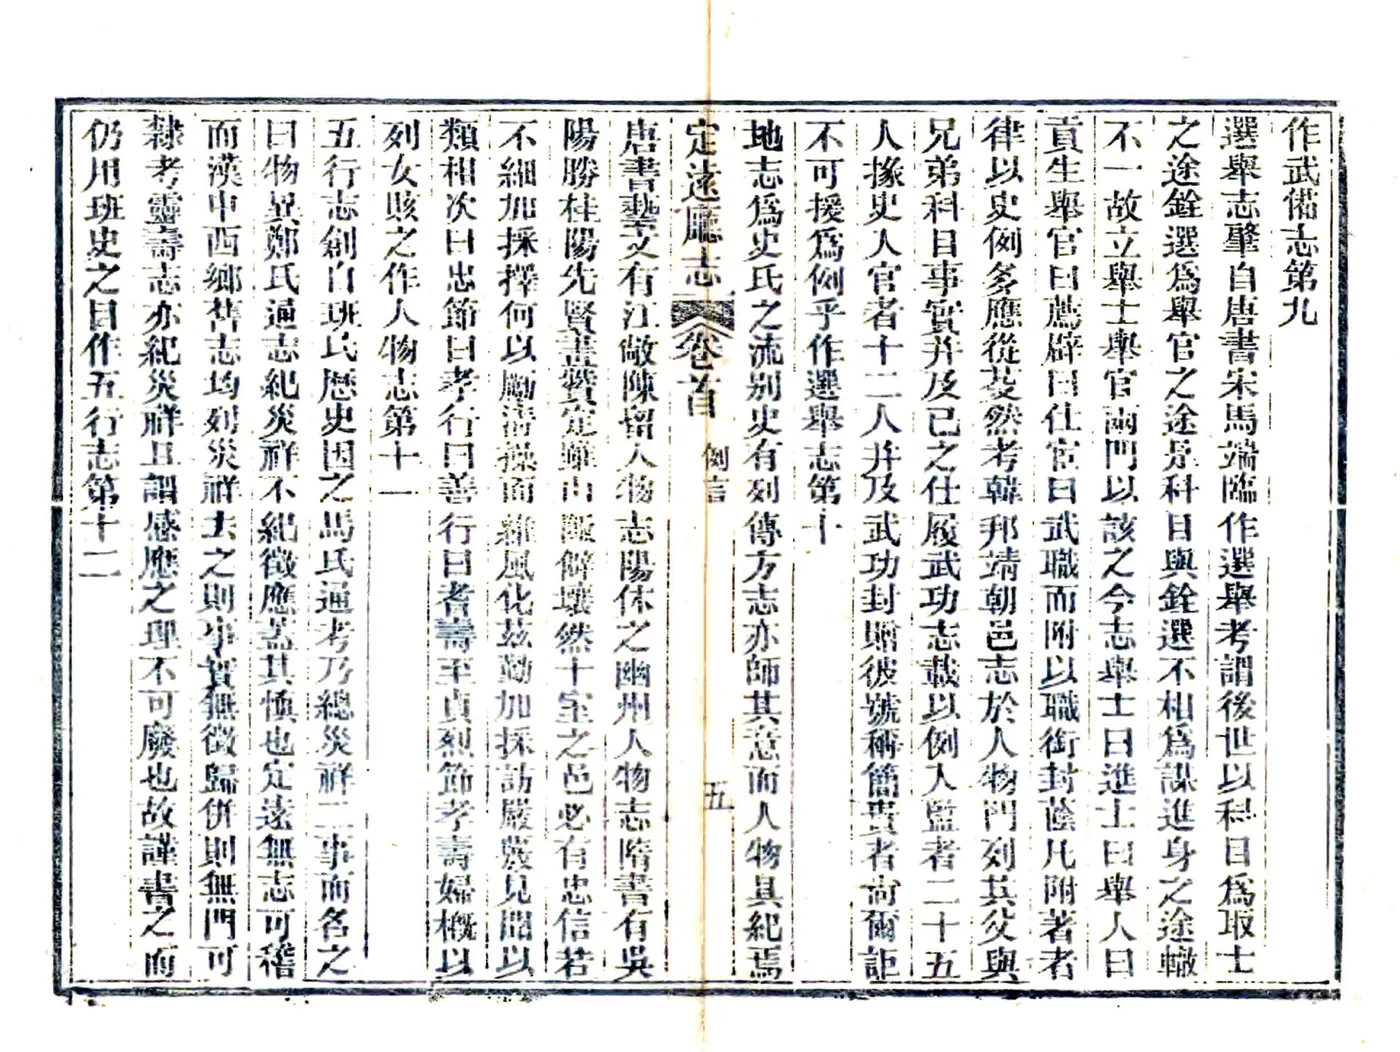 作武備志第九
選舉志肇自唐書宋馬端臨作選舉考謂後世以科目爲取士
之途銓選爲舉官之途是科目與銓選不相爲謀進身之途轍
不一故立舉士舉官兩門以該之今志舉士曰進士曰舉人曰
貢生舉官曰薦辟曰仕宦曰武職而附以職銜封蔭凡附著者
律以史例多應從芟然考韓邦靖朝邑志於人物門列其父與
兄弟科目事實并及已之仕履武功志載以例入監者二十五
人掾史入官者十二人并及武功封贈彼號稱簡貴者尚爾詎
不可援爲例乎作選舉志第十
地志爲史氏之流別史有列傳方志亦師其意而人物具紀焉
定遠廳志 卷首 例言 五
唐書藝文有江敞陳留人物志陽休之幽州人物志隋書有吳
陽勝桂陽先賢畫贊定雖山陬僻壤然十室之邑必有忠信若
不細加採擇何以勵清操而維風化茲勤加採訪嚴覈見聞以
類相次曰忠節曰孝行曰善行曰耆壽至貞烈節孝壽婦概以
列女賅之作人物志第十一
五行志創自班氏歷史因之馬氏通考乃總災祥二事而名之
曰物異鄭氏通志紀災祥不紀徵應蓋其愼也定遠無志可稽
而漢中西鄉舊志均列災祥去之則事實無徵歸併則無門可
隸考靈壽志亦紀災祥且謂感應之理不可廢也故謹書之而
仍用班史之目作五行志第十二